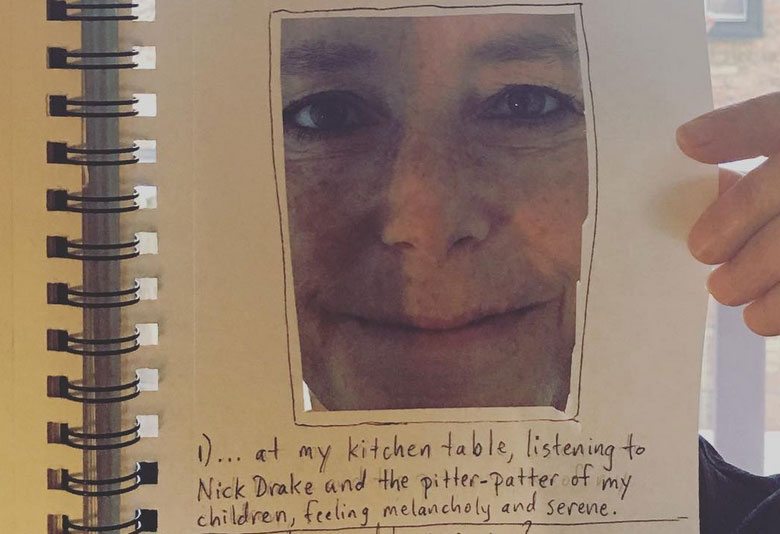 1)... at my kitchen table, listening to
Nick Drake and the pitter-patter of my
children, feeling melancholy and serene.